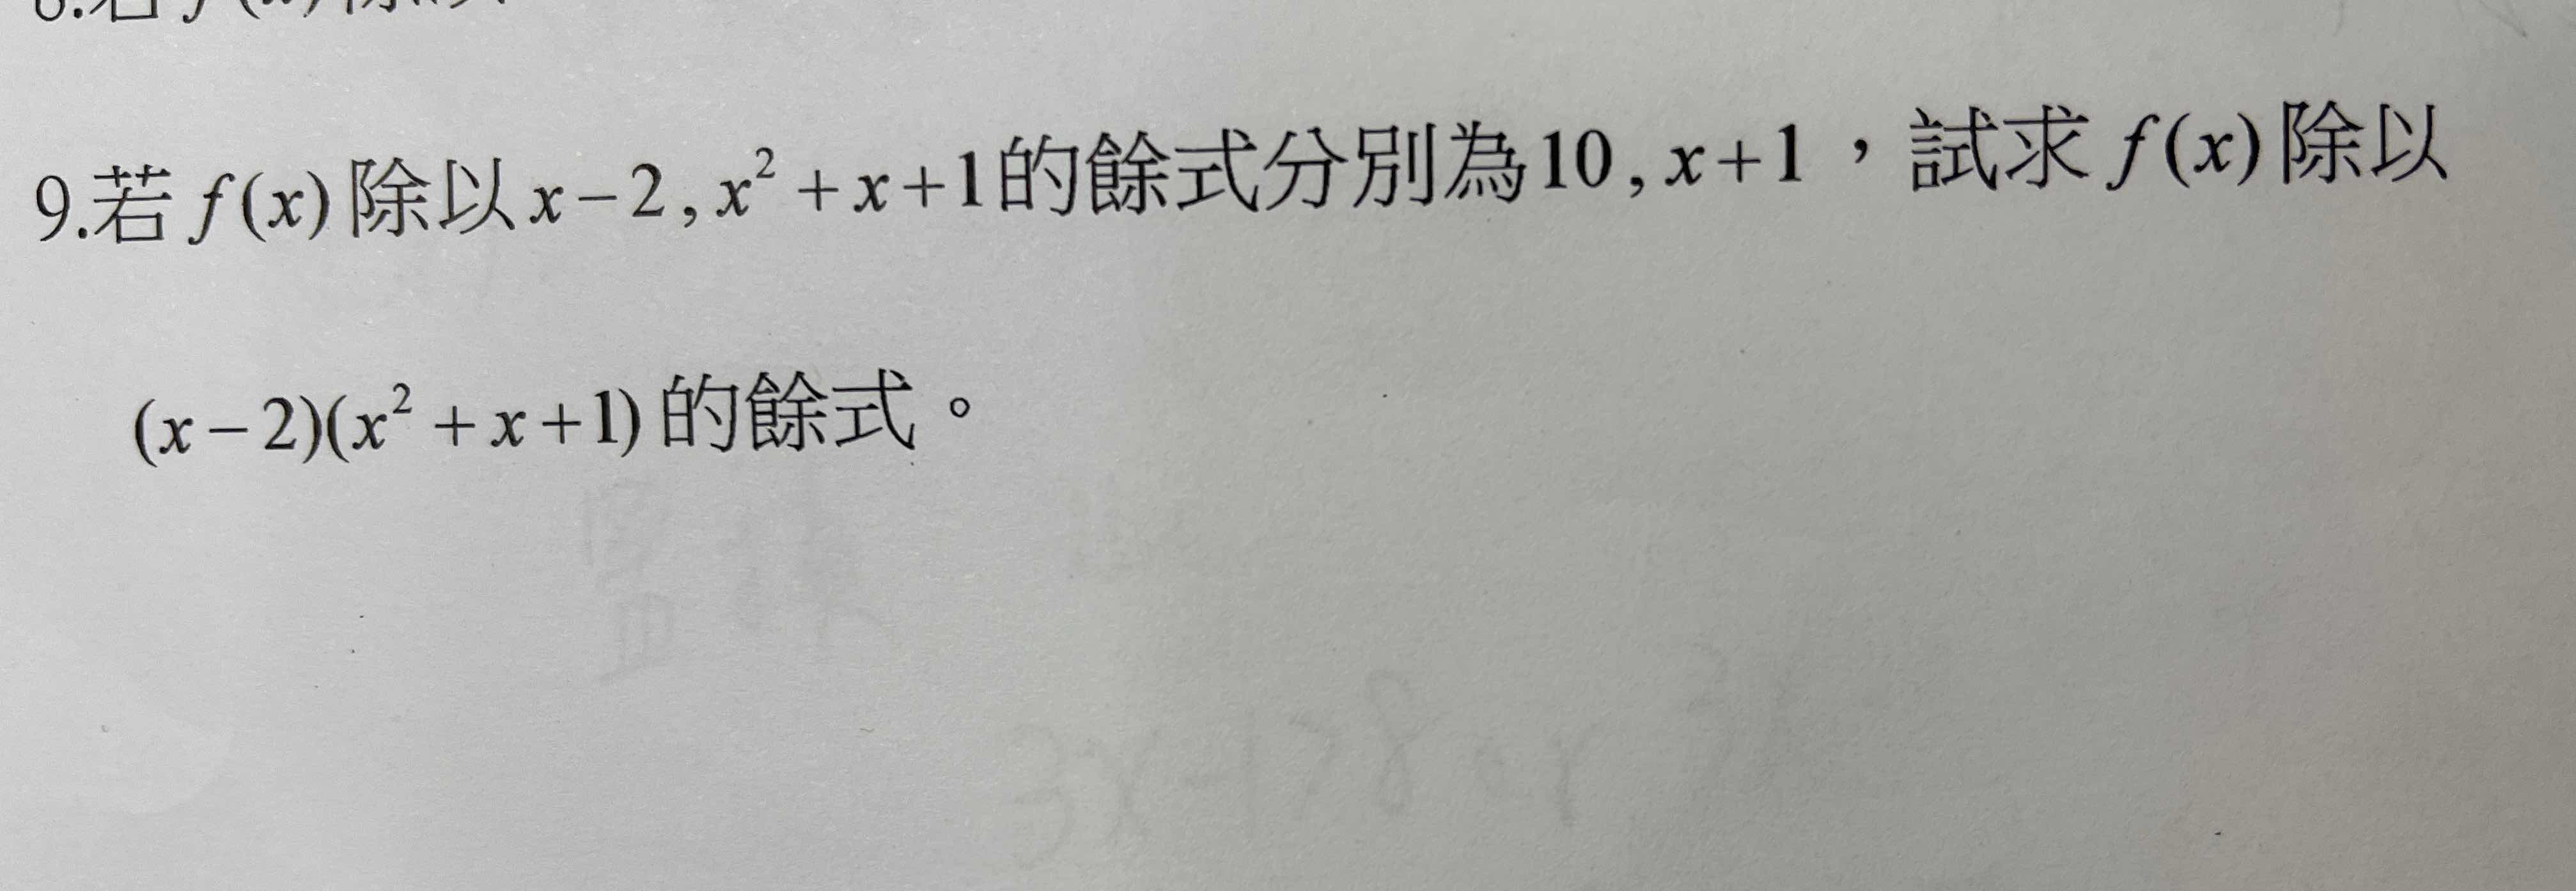 9.若 f(x) 除以 x−2, x²+x+1 的餘式分別為 10, x+1，試求 f(x) 除以
(x−2)(x²+x+1) 的餘式。